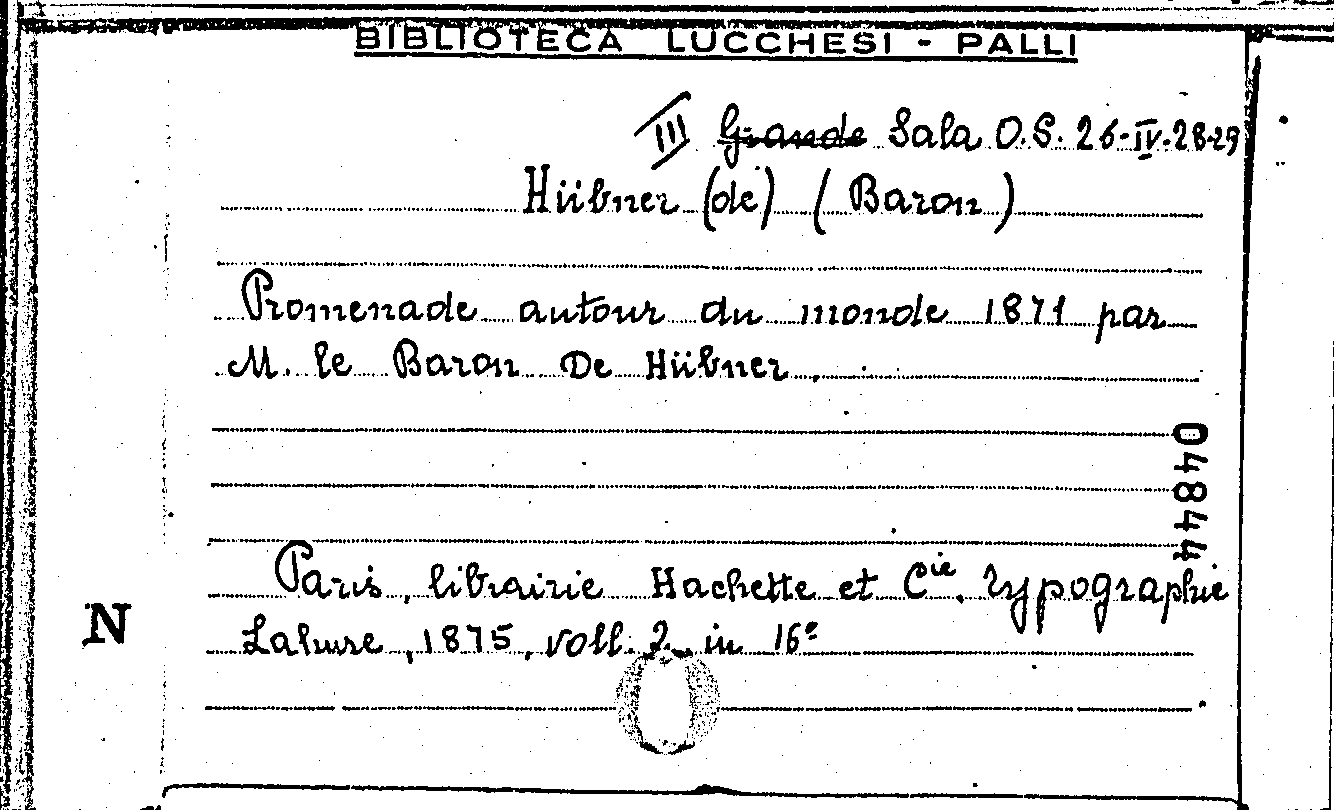 BIBLIOTECA LUCCHESI - PALLI
III Grande Sala O.S. 26-IV.28-29
Hübner (de) (Baron)
Promenade autour du monde 1871 par
M. le Baron De Hübner.
04844
Paris, librairie Hachette et Cie. Typographie
N
Lahure, 1875, voll. 2 in 16°